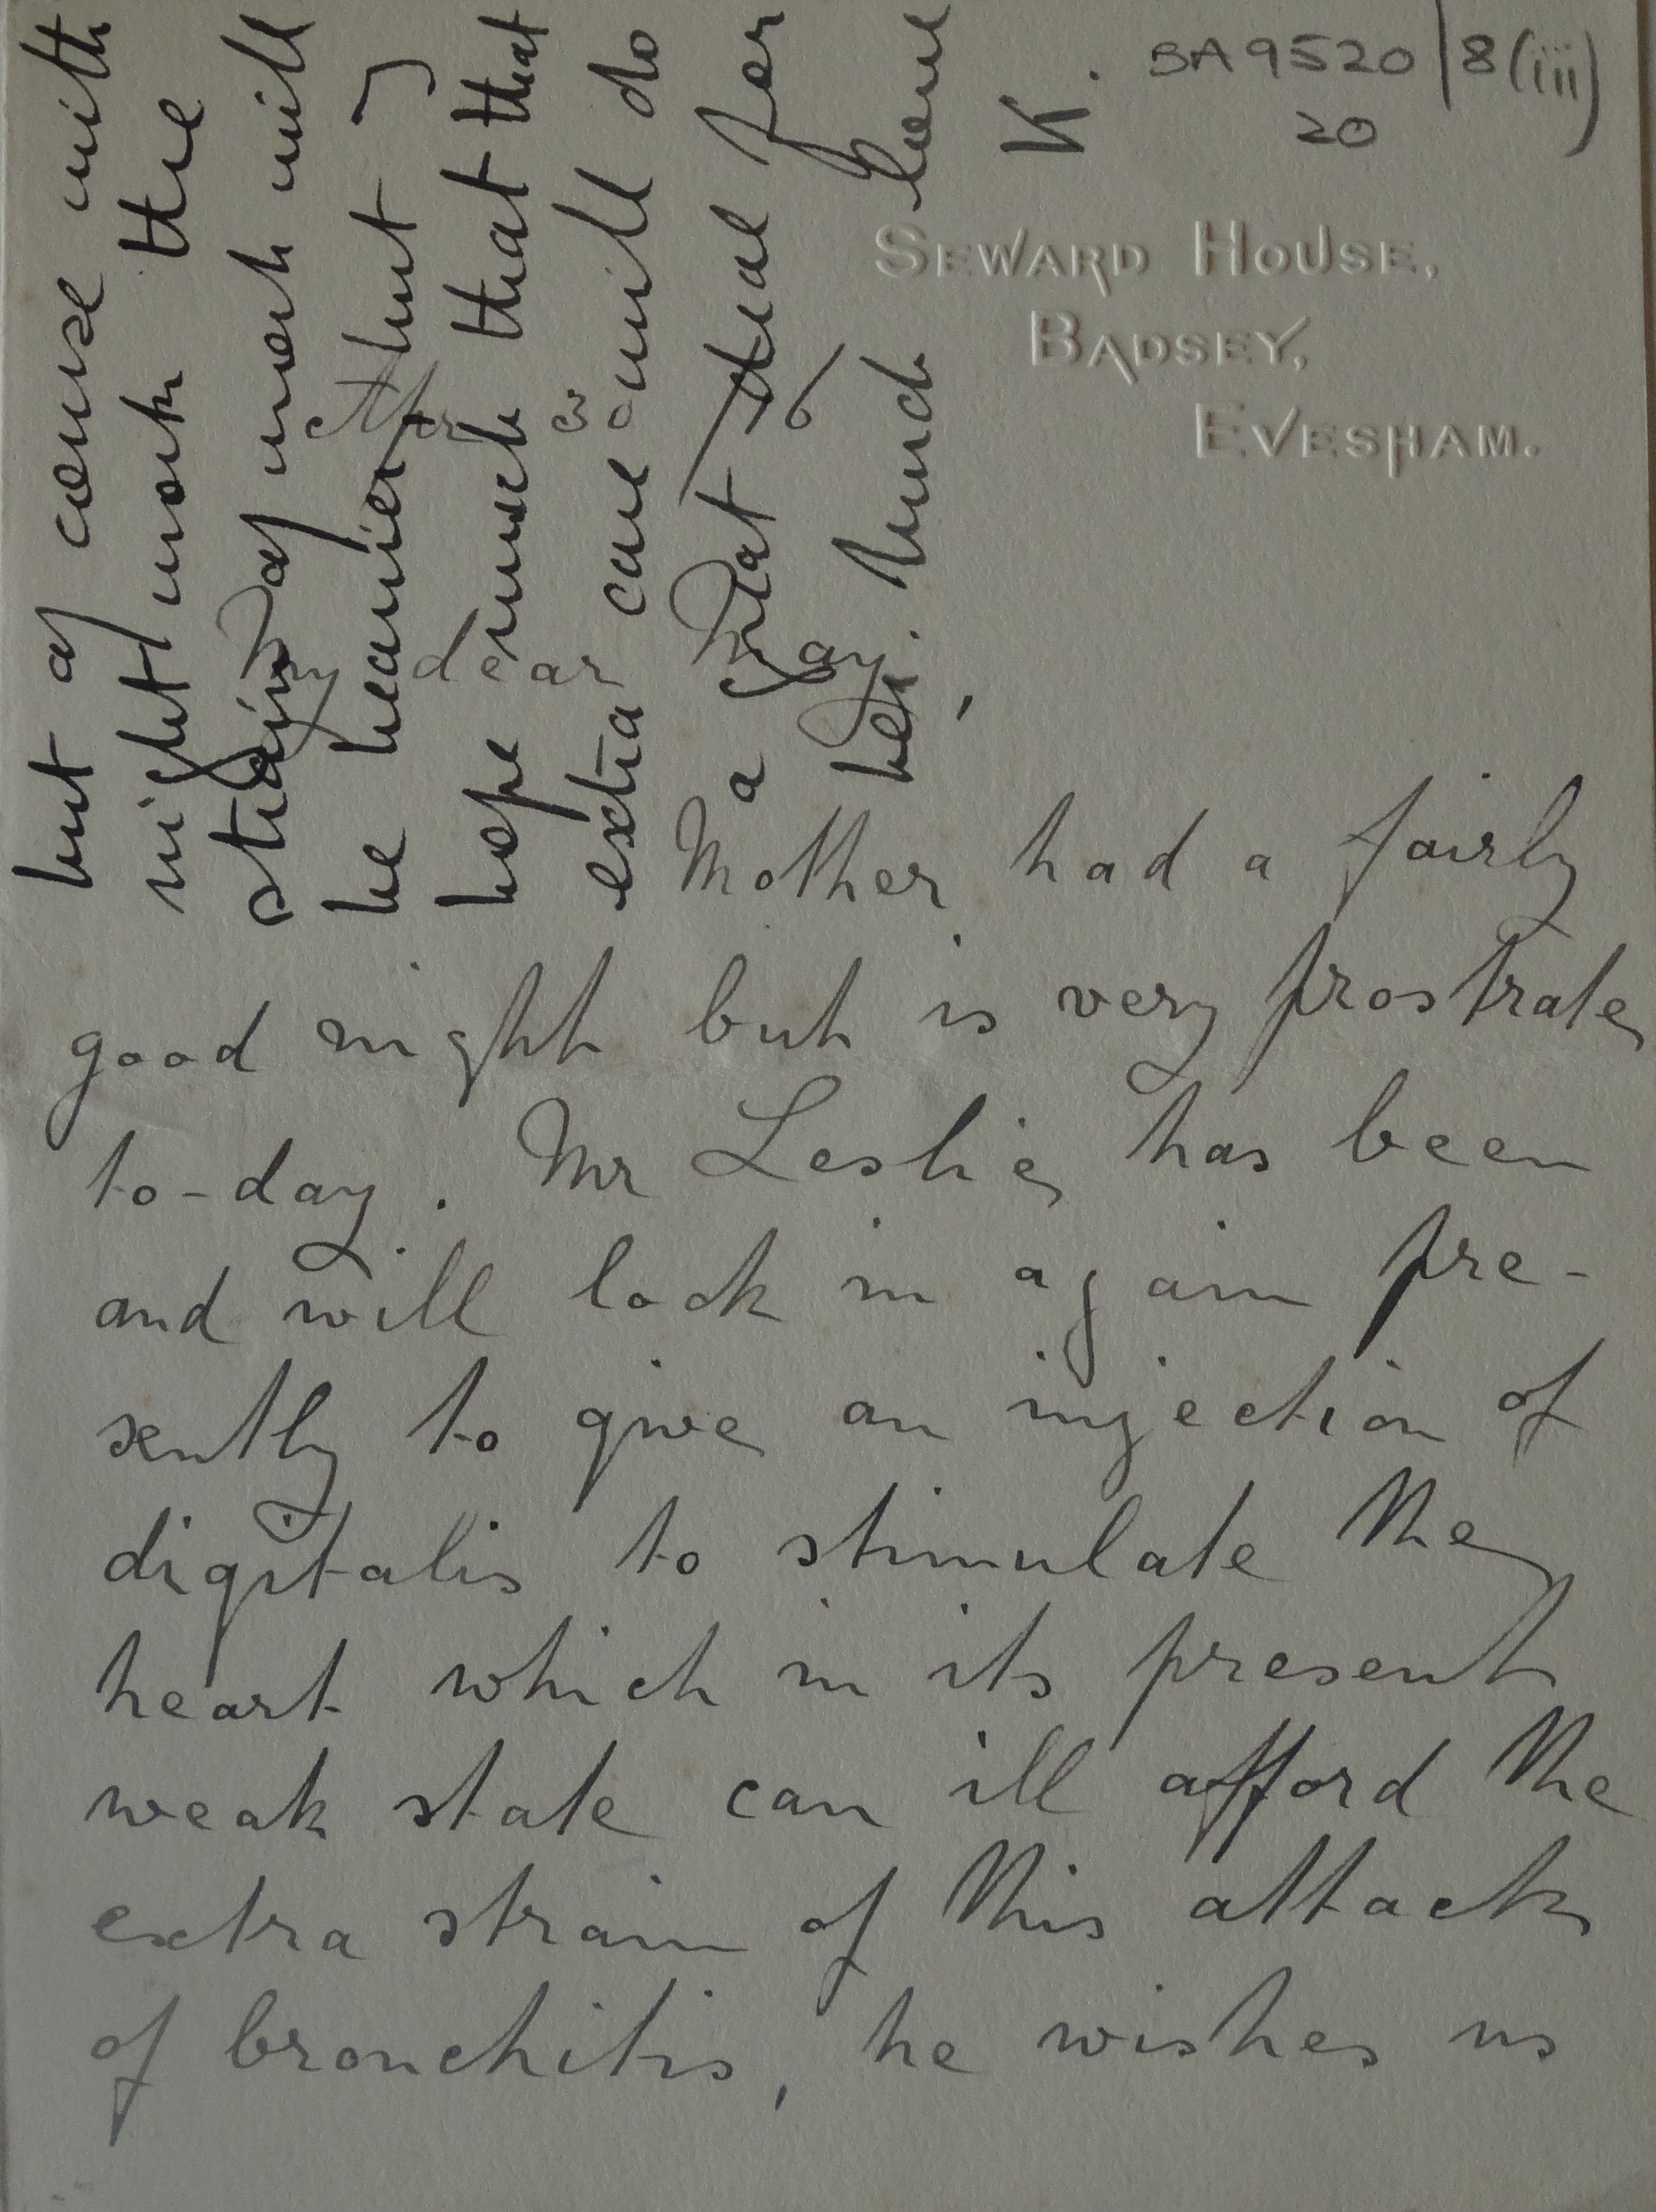 BA9520/8(iii)
20
SEWARD HOUSE,
BADSEY,
EVESHAM.
My dear May,
Mother had a fairly
good night but is very prostrate
to-day. Mr Leslie has been
and will look in again pre-
sently to give an injection of
digitalis to stimulate the
heart which in its present
weak state can ill afford the
extra strain of this attack
of bronchitis, he wishes us
but of course with
night work the
strain of work will
be heavier, but I
hope much that that
extra care will do
a great deal for
her. Much love
K.